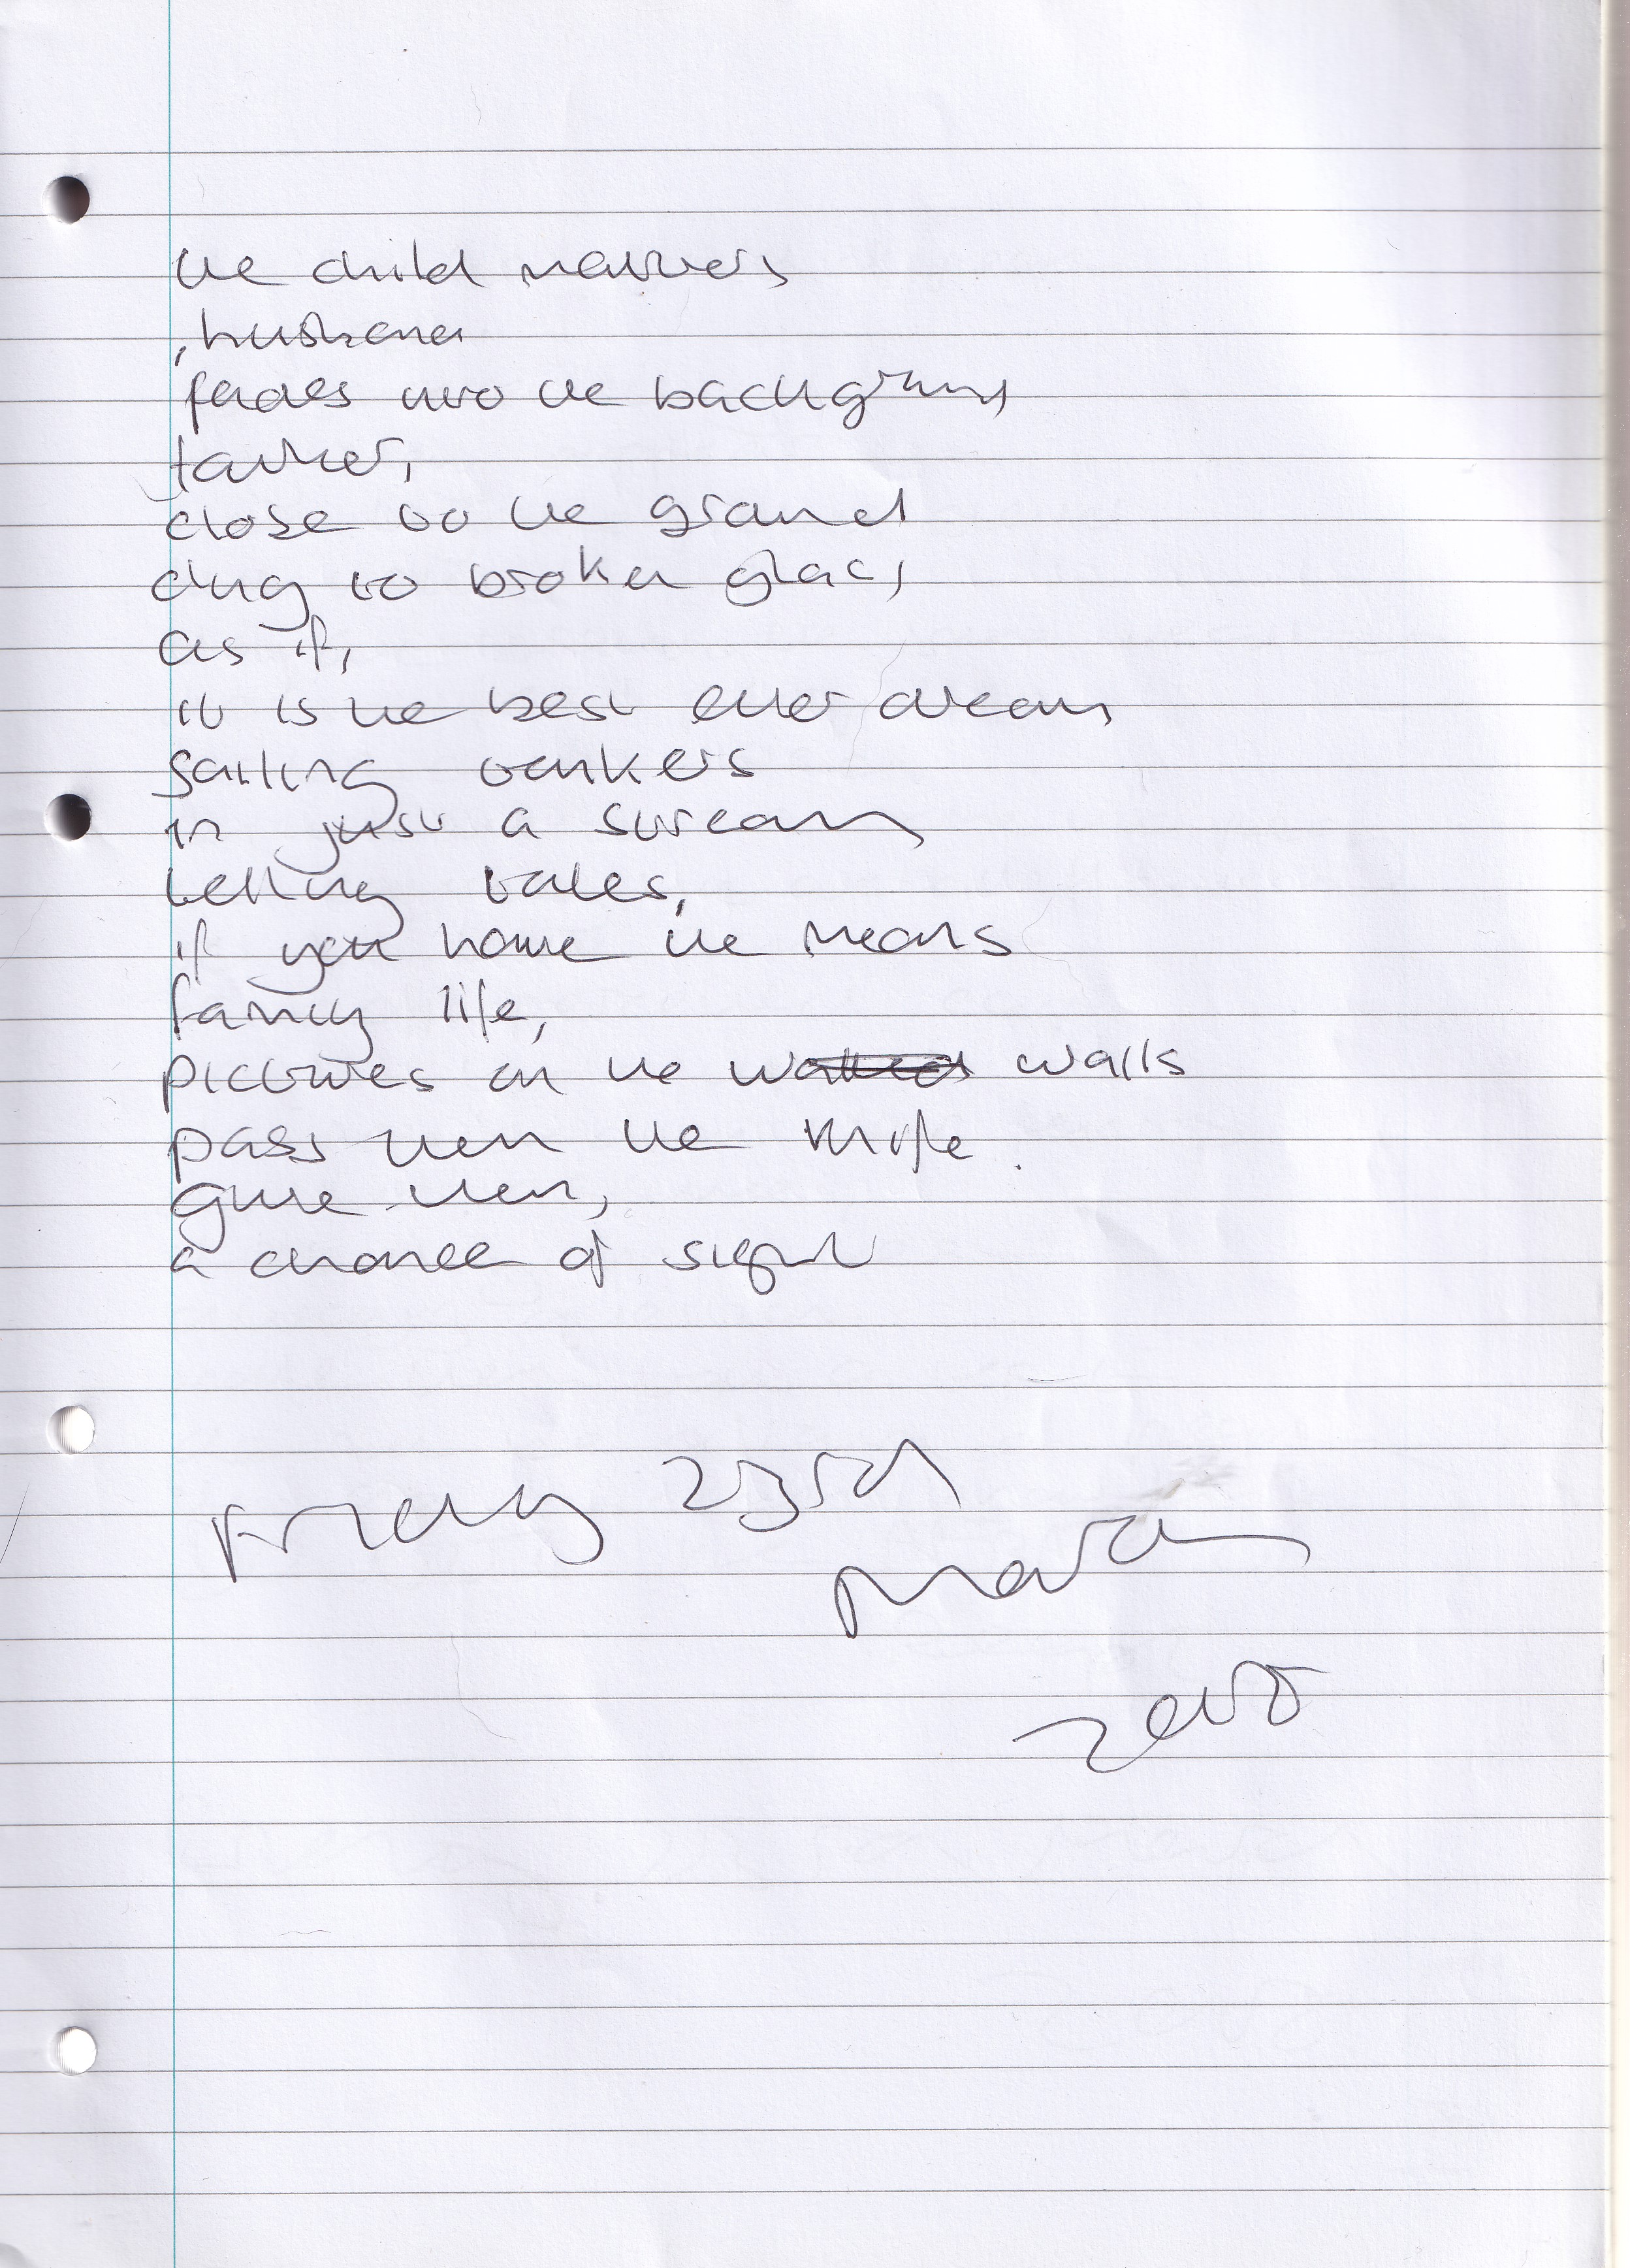 the child matters
, husband
fades into the background
father,
close to the ground
cling to broken glass,
as if,
it is the best ever dream
sailing tankers
in just a stream
telling tales,
if you have the means
fancy life,
pictures on the walls
pass them the knife.
give them,
a chance of sight
Friday 23rd
March